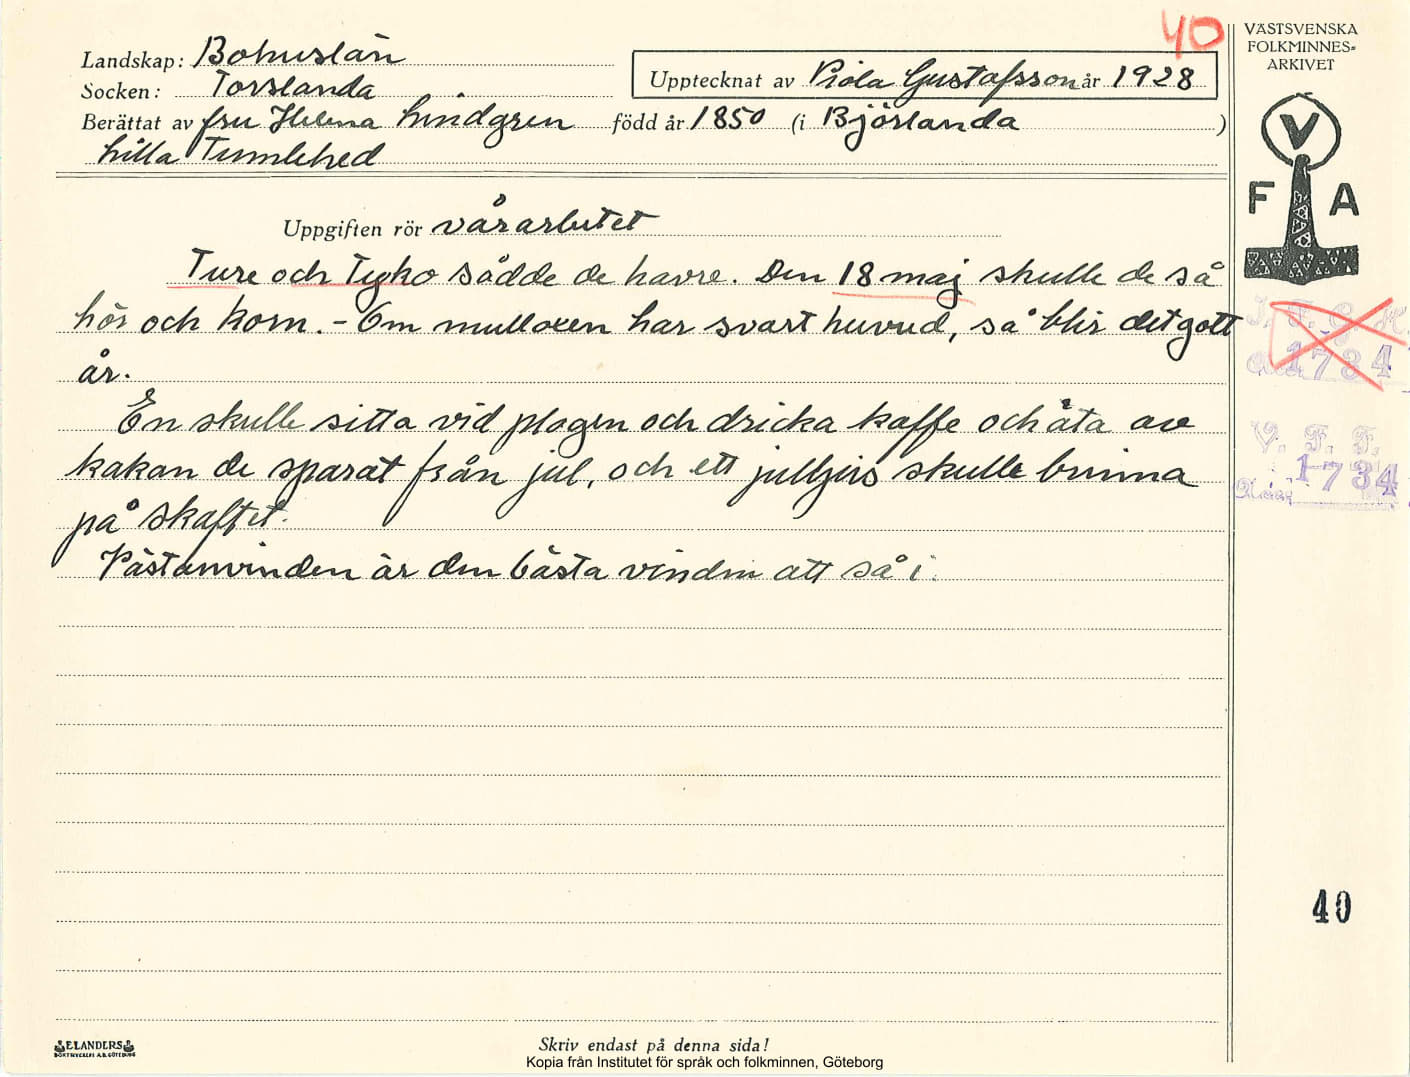 40
VÄSTSVENSKA
FOLKMINNES-
ARKIVET
Landskap: Bohuslän
Socken: Torslanda
Upptecknat av Viola Gustafsson år 1928
Berättat av fru Helena Lindgren född år 1850 (i Björlanda)
Lilla Tumlehed
V
F A
Uppgiften rör vårarbetet
Ture och Tyko sådde de havre. Den 18 maj skulle de så
hör och korn. - Om mulloxen har svart huvud, så blir det gott
år.
En skulle sitta vid plogen och dricka kaffe och äta av
kakan de sparat från jul, och ett julljus skulle brinna
på skaftet.
Västanvinden är den bästa vinden att så i.
I. F. G. H.
1734
V. F. F.
1734
40
ELANDERS
BOKTRYCKERI A.B. GÖTEBORG
Skriv endast på denna sida!
Kopia från Institutet för språk och folkminnen, Göteborg